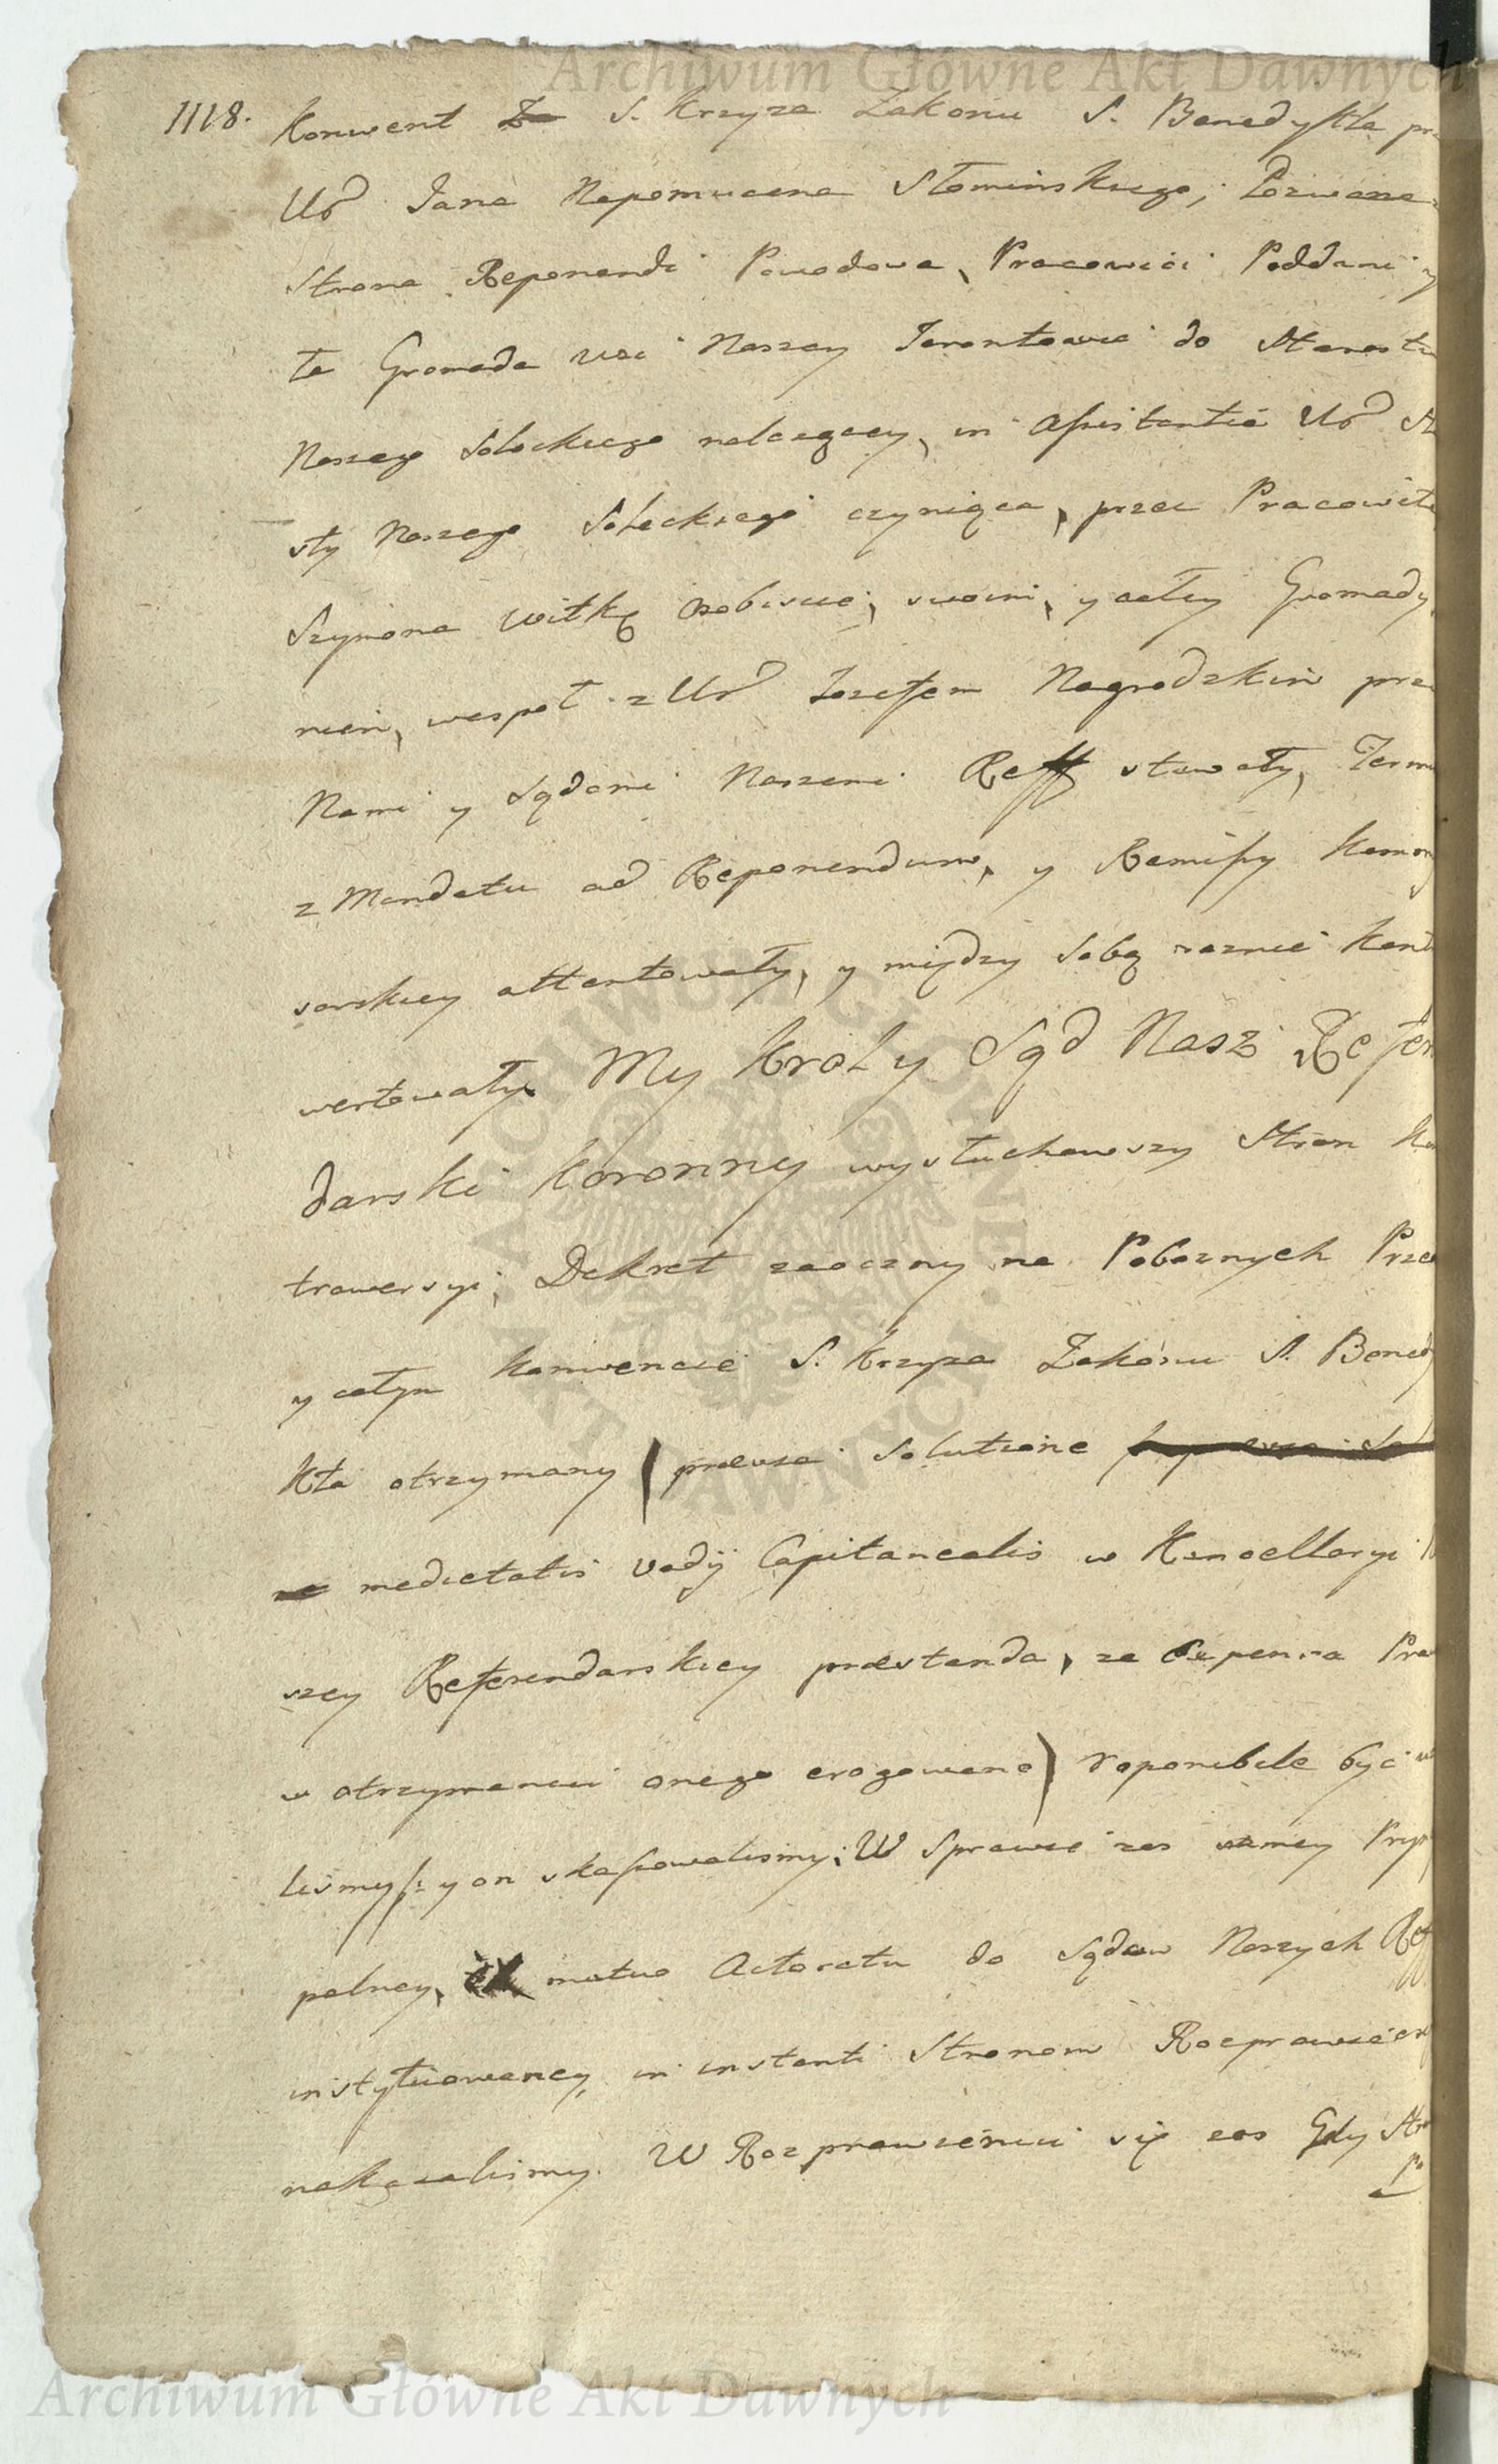 Archiwum Główne Akt Dawnych
1118.
Konwent S. Krzyza Zakonu S. Benedykta prz
Ur Jana Nepomucena Słominskiego; Pozwana
Strona Reponendi Powodowa, Pracowici Poddani y
ta Gromada wsi Naszey Jarentowic do Starostw
Naszego Soleckiego nalezącey, in assistentia Ur Sta
sty Naszego Soleckiego czyniąca, przez Pracowite
Szymona Witkę osobiscie, swoim, y całey Gromady
niem, wespoł z Ur Jozefem Nagrodzkim prze
Nami y Sądami Naszemi Reff stawały, Termi
z Mandatu ad Reponendum, y Remissy Kommi
sarskiey attentowały, y między sobą roznie kontr
wertowały. My Krol y Sąd Nasz Referen
darski Koronny wysłuchawszy Stron kon
trowersyi, Dekret zaoczny na Poboznych Prze
y całym Konwencie S. Krzyza Zakonu S. Benedy
kta otrzymany ( praevia solutione
medietatis vadij Capitanealis w Kancellaryi
szey Referendarskiey praestanda, za expensa Praw
w otrzymaniu onego erogowane) reponibile być
lismy y on skassowalismy; W Sprawie zas samey Pryn
palney, motuo Actoratu do Sądow Naszych Reff
instytuowaney, in instanti Stronom Rozprawić
nakazalismy. W Rozprawieniu się zas Gdy Str
Archiwum Główne Akt Dawnych